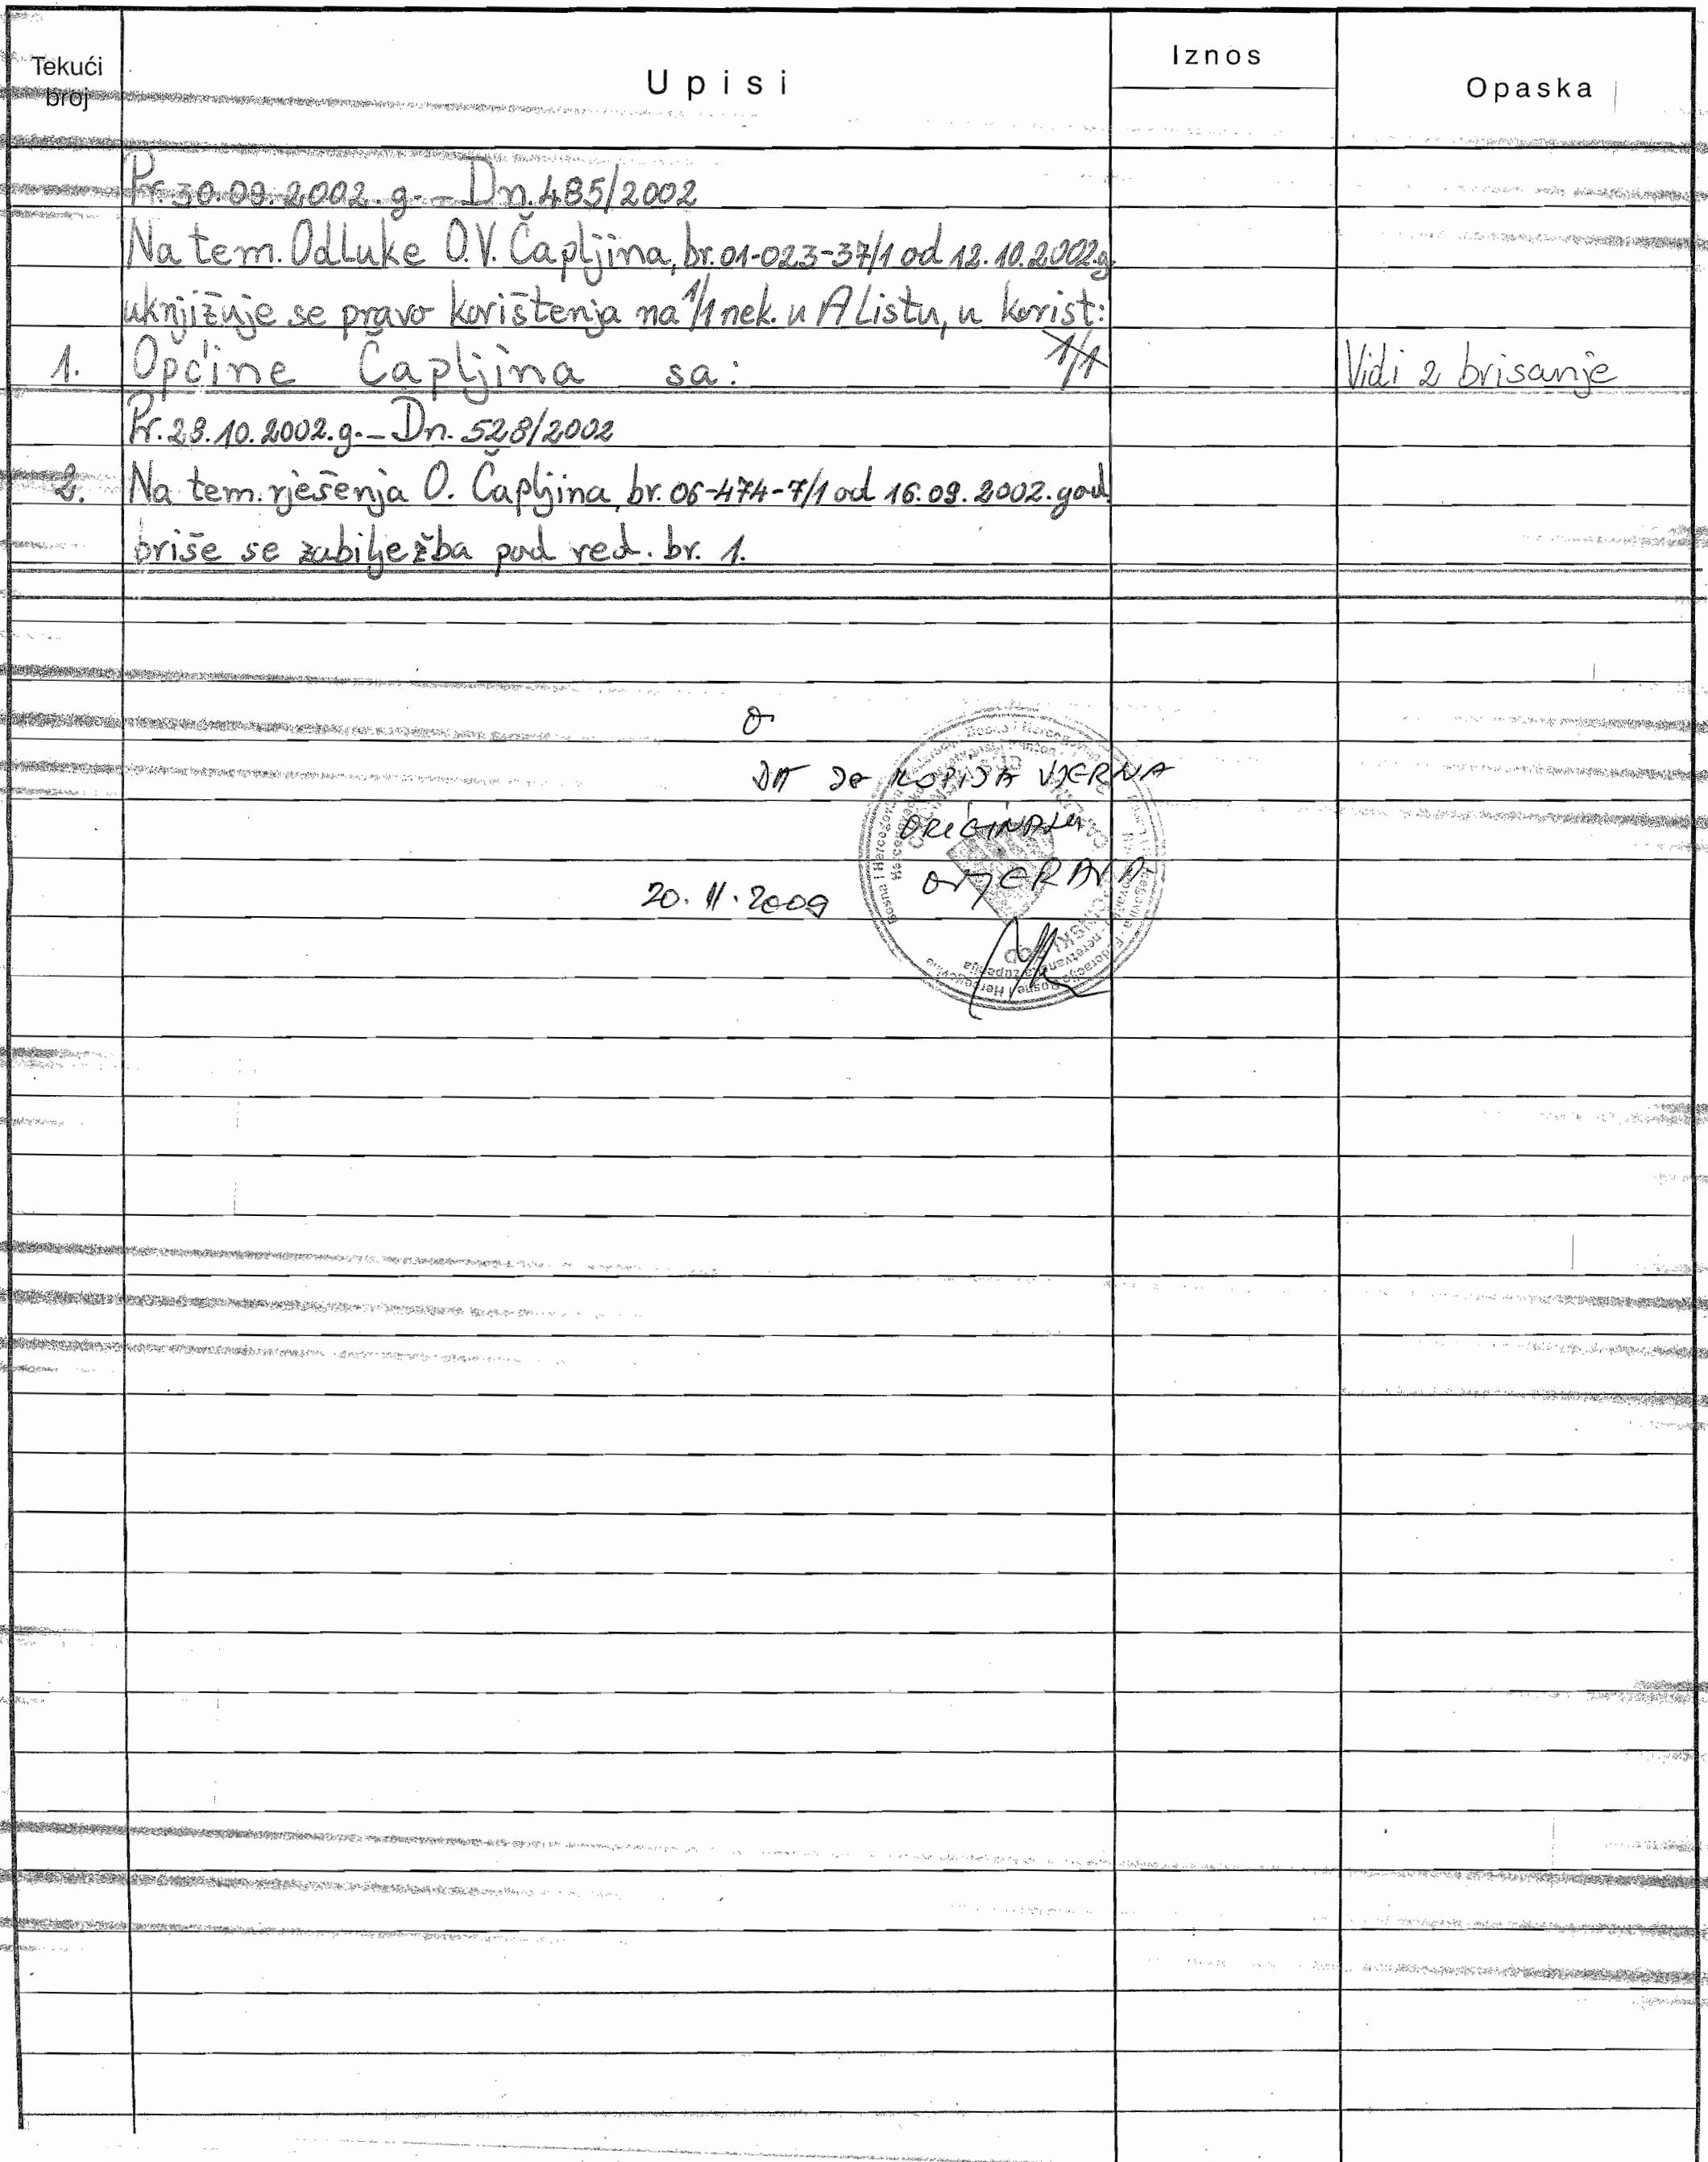 Tekući broj
Upisi
Iznos
Opaska
Pr. 30.09.2002.g. - Dn. 485/2002
Na tem. Odluke O.V. Čapljina, br. 01-023-37/1 od 12.10.2002.g
uknjižuje se pravo korištenja na 1/1 nek. u A Listu, u korist:
1. Općine Čapljina sa: 1/1 Vidi 2 brisanje
Pr. 28.10.2002.g. - Dn. 528/2002
2. Na tem. rješenja O. Čapljina, br. 06-474-7/1 od 16.09.2002. god
briše se zabilježba pod red. br. 1.
DA JE KOPIJA VJERNA
ORIGINALU
OVJERAVA
20.11.2009